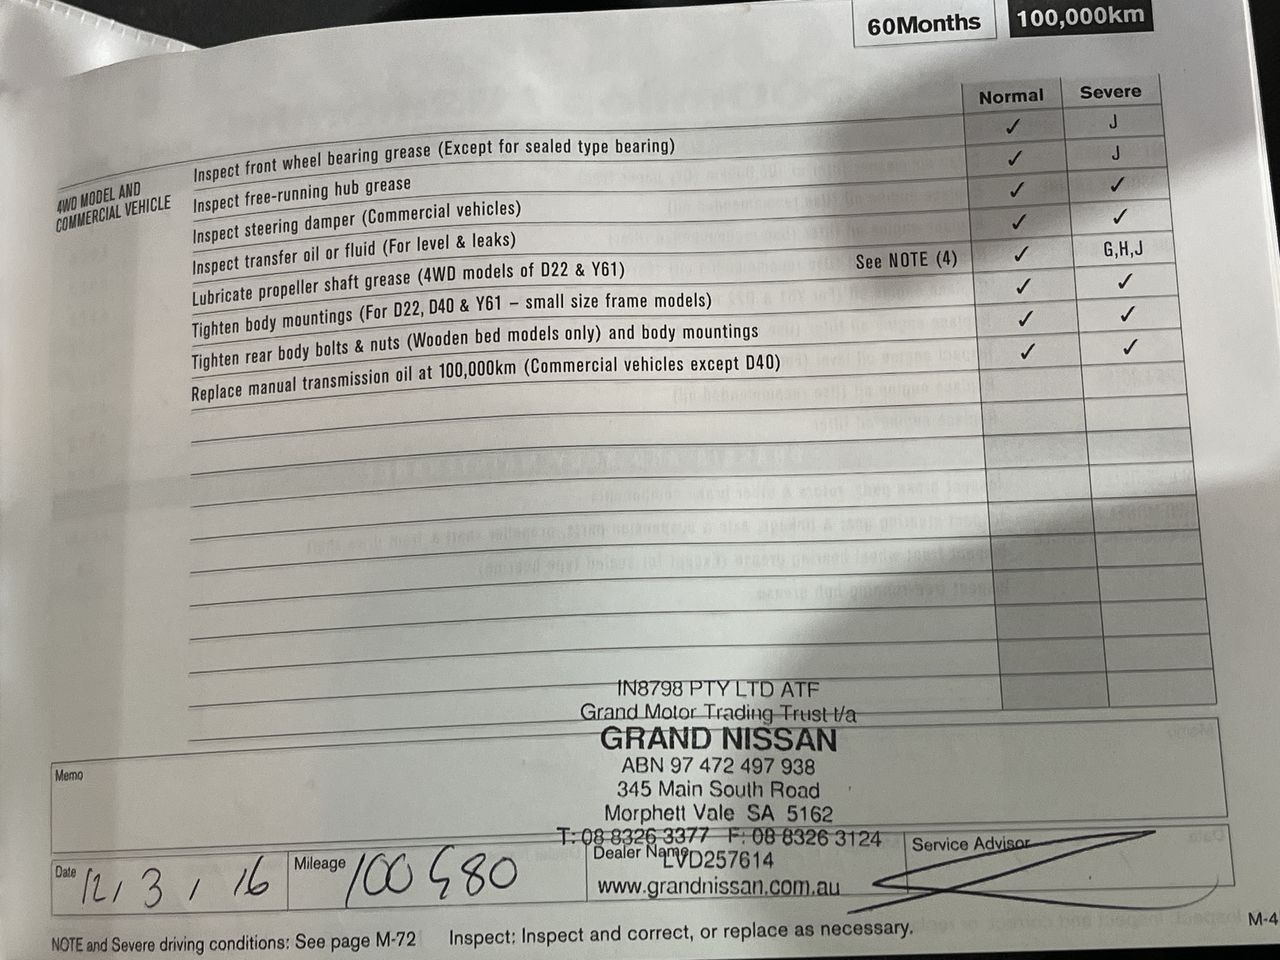 60Months 100,000km
Normal Severe
4WD MODEL AND
COMMERCIAL VEHICLE
Inspect front wheel bearing grease (Except for sealed type bearing) ✓ J
Inspect free-running hub grease ✓ J
Inspect steering damper (Commercial vehicles) ✓ ✓
Inspect transfer oil or fluid (For level & leaks) ✓ ✓
Lubricate propeller shaft grease (4WD models of D22 & Y61) See NOTE (4) ✓ G,H,J
Tighten body mountings (For D22, D40 & Y61 – small size frame models) ✓ ✓
Tighten rear body bolts & nuts (Wooden bed models only) and body mountings ✓ ✓
Replace manual transmission oil at 100,000km (Commercial vehicles except D40) ✓ ✓
IN8798 PTY LTD ATF
Grand Motor Trading Trust t/a
GRAND NISSAN
ABN 97 472 497 938
345 Main South Road
Morphett Vale SA 5162
T: 08 8326 3377 F: 08 8326 3124
LVD257614
www.grandnissan.com.au
Memo
Date 12/3/16 Mileage 100580 Dealer Name Service Advisor
NOTE and Severe driving conditions: See page M-72 Inspect: Inspect and correct, or replace as necessary.
M-4